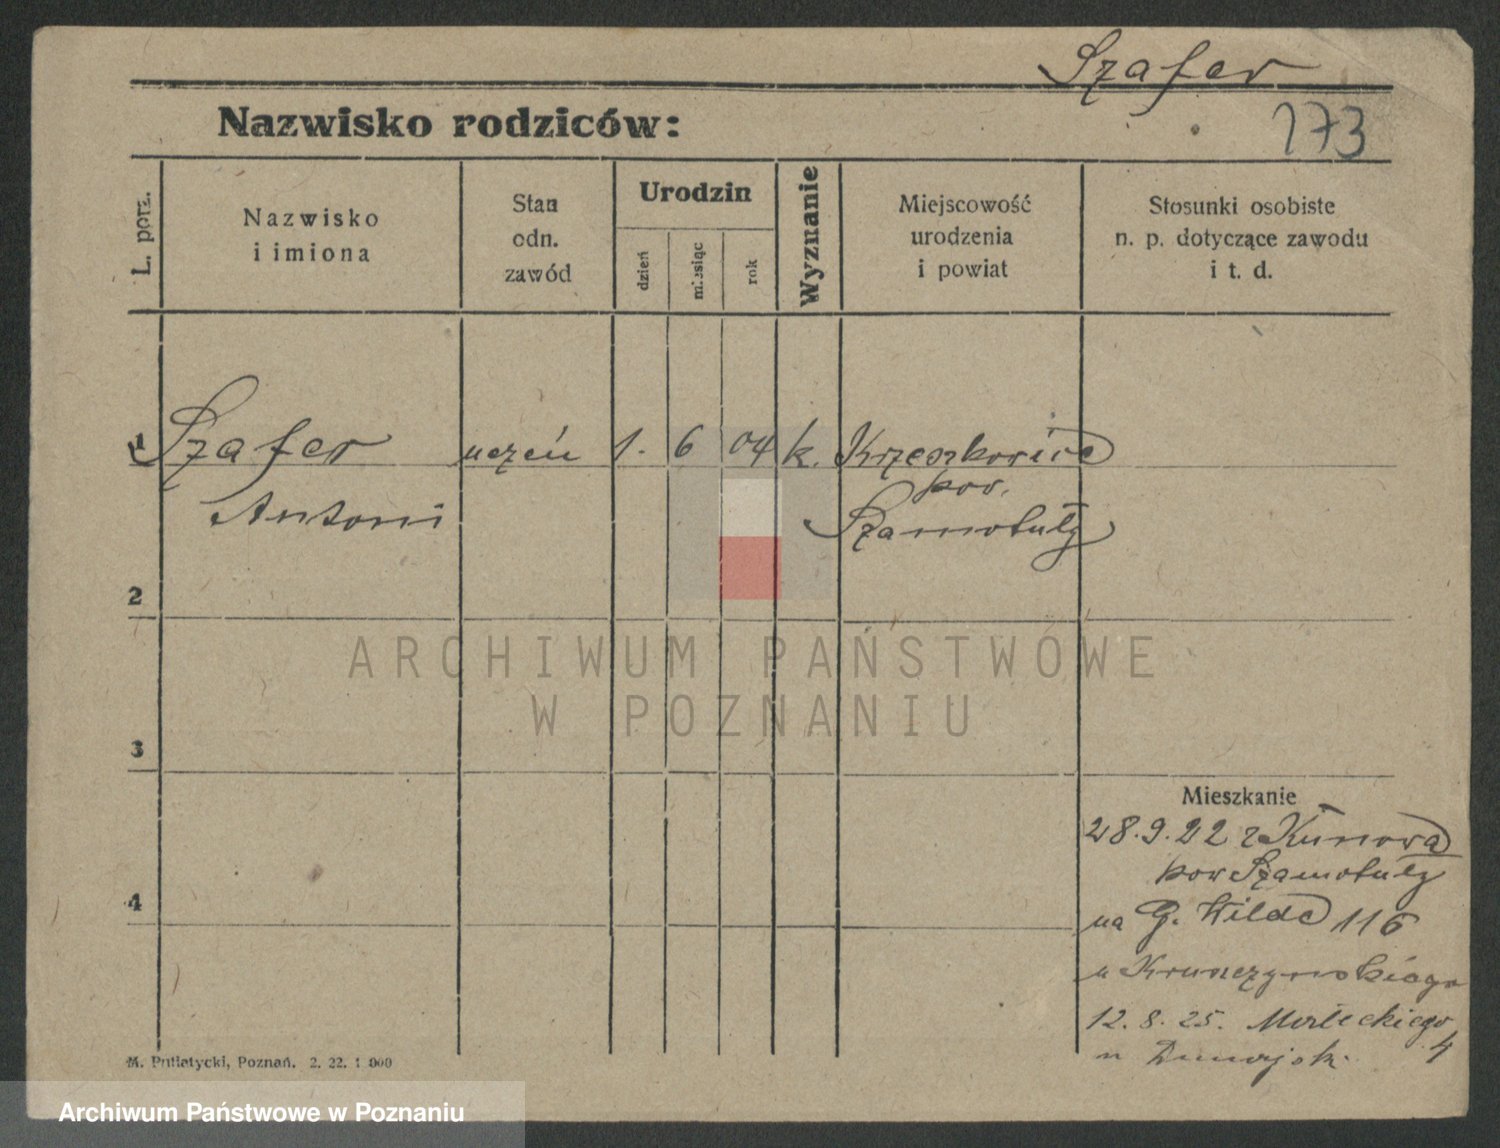 Szafer
Nazwisko rodziców:
173
L. porz.
Nazwisko
i imiona
Stan
odn.
zawód
Urodzin
dzień
miesiąc
rok
Wyznanie
Miejscowość
urodzenia
i powiat
Stosunki osobiste
n. p. dotyczące zawodu
i t. d.
1
Szafer
Antoni
uczeń
1.
6
04
k.
Krzeszkowice
pow.
Szamotuły
2
3
4
ARCHIWUM PAŃSTWOWE
W POZNANIU
Mieszkanie
28.9.22 z Kunowa
pow Szamotuły
na G. Wilda 116
u
12.8.25. 4
u
M. Putiatycki, Poznań. 2. 22. 1 000
Archiwum Państwowe w Poznaniu